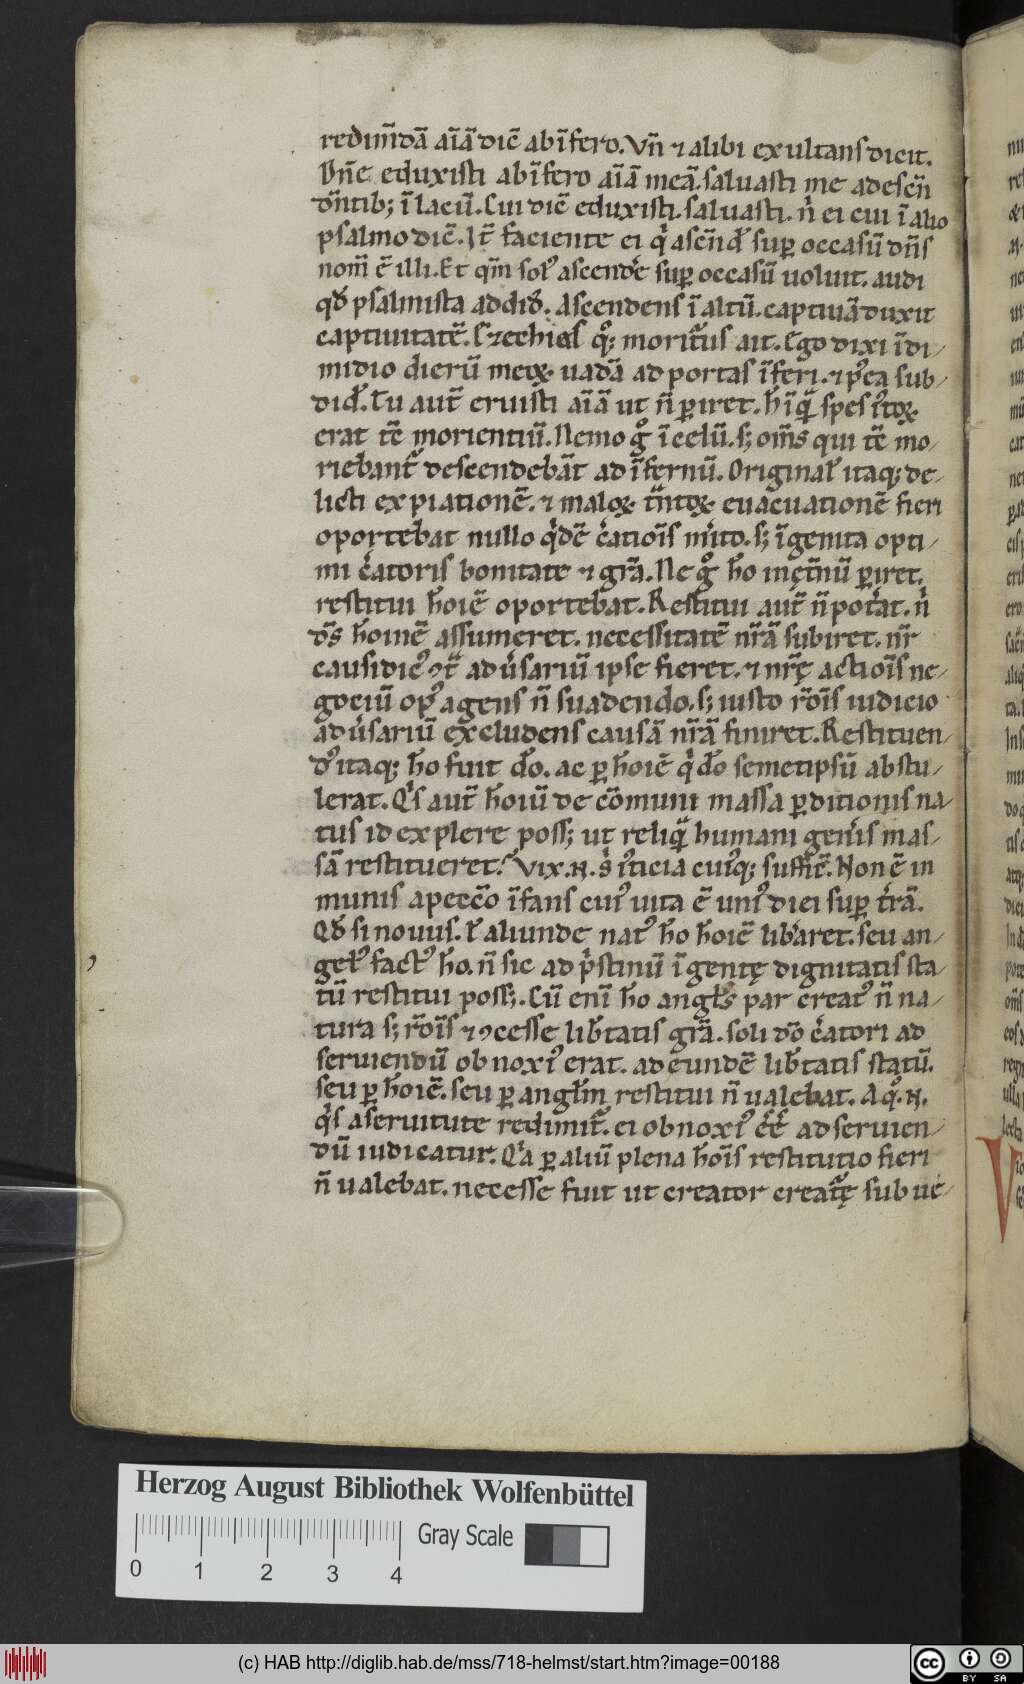 redim̄dā aīā dic̄ ab īfero. Vn̄ ⁊ alibi exultans dicit.
Dn̄e eduxisti ab īfero aīā meā. saluasti me a descēn
dn̄tib; ī lacū. Cui dic̄ eduxisti. saluasti. n̓ ei cui ī alio
psalmo dic̄. It̄ faciente ei q̓ ascn̄d̓ sup occasū dn̄s
nom̄ ē illi. Et qm̄ sol̓ ascende̓ sup occasū uoluit. audi
qd̓ psalmista addid̓. Ascendens ī altū. captiuā duxit
captiuitatē. Ezechias q̊; morit᷑us ait. Ego dixi ī di/
midio dierū meoꝝ. uadā ad portas īferi. ⁊ p̓ea sub/
did̓. Tu aut̄ eruisti aīā ut n̄ ꝑiret. h̓ īq̓ spes iᷤtoꝝ
erat tē morientiū. Nemo g̊ ī celū. s; om̄s qui tē mo/
riebant᷑ descendebāt ad īfernū. Original̓ itaq; de/
licti expiationē. ⁊ maloꝝ tn̄toꝝ euacuationē fieri
oportebat nullo q̓dē c̓atiois m̓ito. s; īgenita opti/
mi c̓atoris bonitate ⁊ gr̄a. Ne g̊ ho in et̓nū ꝑiret.
restitui hoīē oportebat. Restitui aut̄ n̄ pot̓at. n̓
d̄s hoīnē assumeret. necessitatē nr̄ā subiret. nr̄
causidic᷒ ꝯt̓ adu̓sariū ipse fieret. ⁊ nr̄ę actioīs ne/
gociū op᷒ agens n̄ suadendo. s; iusto rōīs iudicio
adu̓sariū excludens causā nr̄ā finiret. Restituen/
d᷒ itaq; ho fuit d̄o. ac ꝑ hoīē q̓ d̄o semetipsū abstu/
lerat. Q̓s aut̄ hoīū de cōmuni massa ꝑditionis na/
tus id explere poss; ut reliq̄ humani gen̓is mas/
sā restitueret? Vix .N. s̓ iᷤticia cuiᷤq; suffic̄. Non ē in
munis a peccō īfans cui᷒ uita ē uni᷒ diei sup t̓rā.
Qd̓ si nouus. t̓ aliunde nat᷒ ho hoīē lib̓aret. seu an/
gel᷒ fact᷒ ho. n̄ sic ad p̓stinū ī gentę dignitatis sta/
tū restitui poss;. Cū enī ho angl̓s par creat᷒ n̄ na/
tura s; rōīs ⁊ ꝯcesse lib̓tatis gr̄a. soli d̄o c̓atori ad
seruiendū obnoxi᷒ erat. ad eundē lib̓tatis statū.
seu ꝑ hoīē. seu ꝑ angl̓m restitui n̄ ualebat. A q̊ .N.
q̓s a seruitute redimit᷑. ei obnoxi᷒ ē̓ ad seruien/
dū iudicatur. Q̓a ꝑ aliū plena hoīs restitutio fieri
n̄ ualebat. necesse fuit ut creator creat᷑ę sub ue/
Herzog August Bibliothek Wolfenbüttel
Gray Scale
0 1 2 3 4
(c) HAB http://diglib.hab.de/mss/718-helmst/start.htm?image=00188
cc BY SA